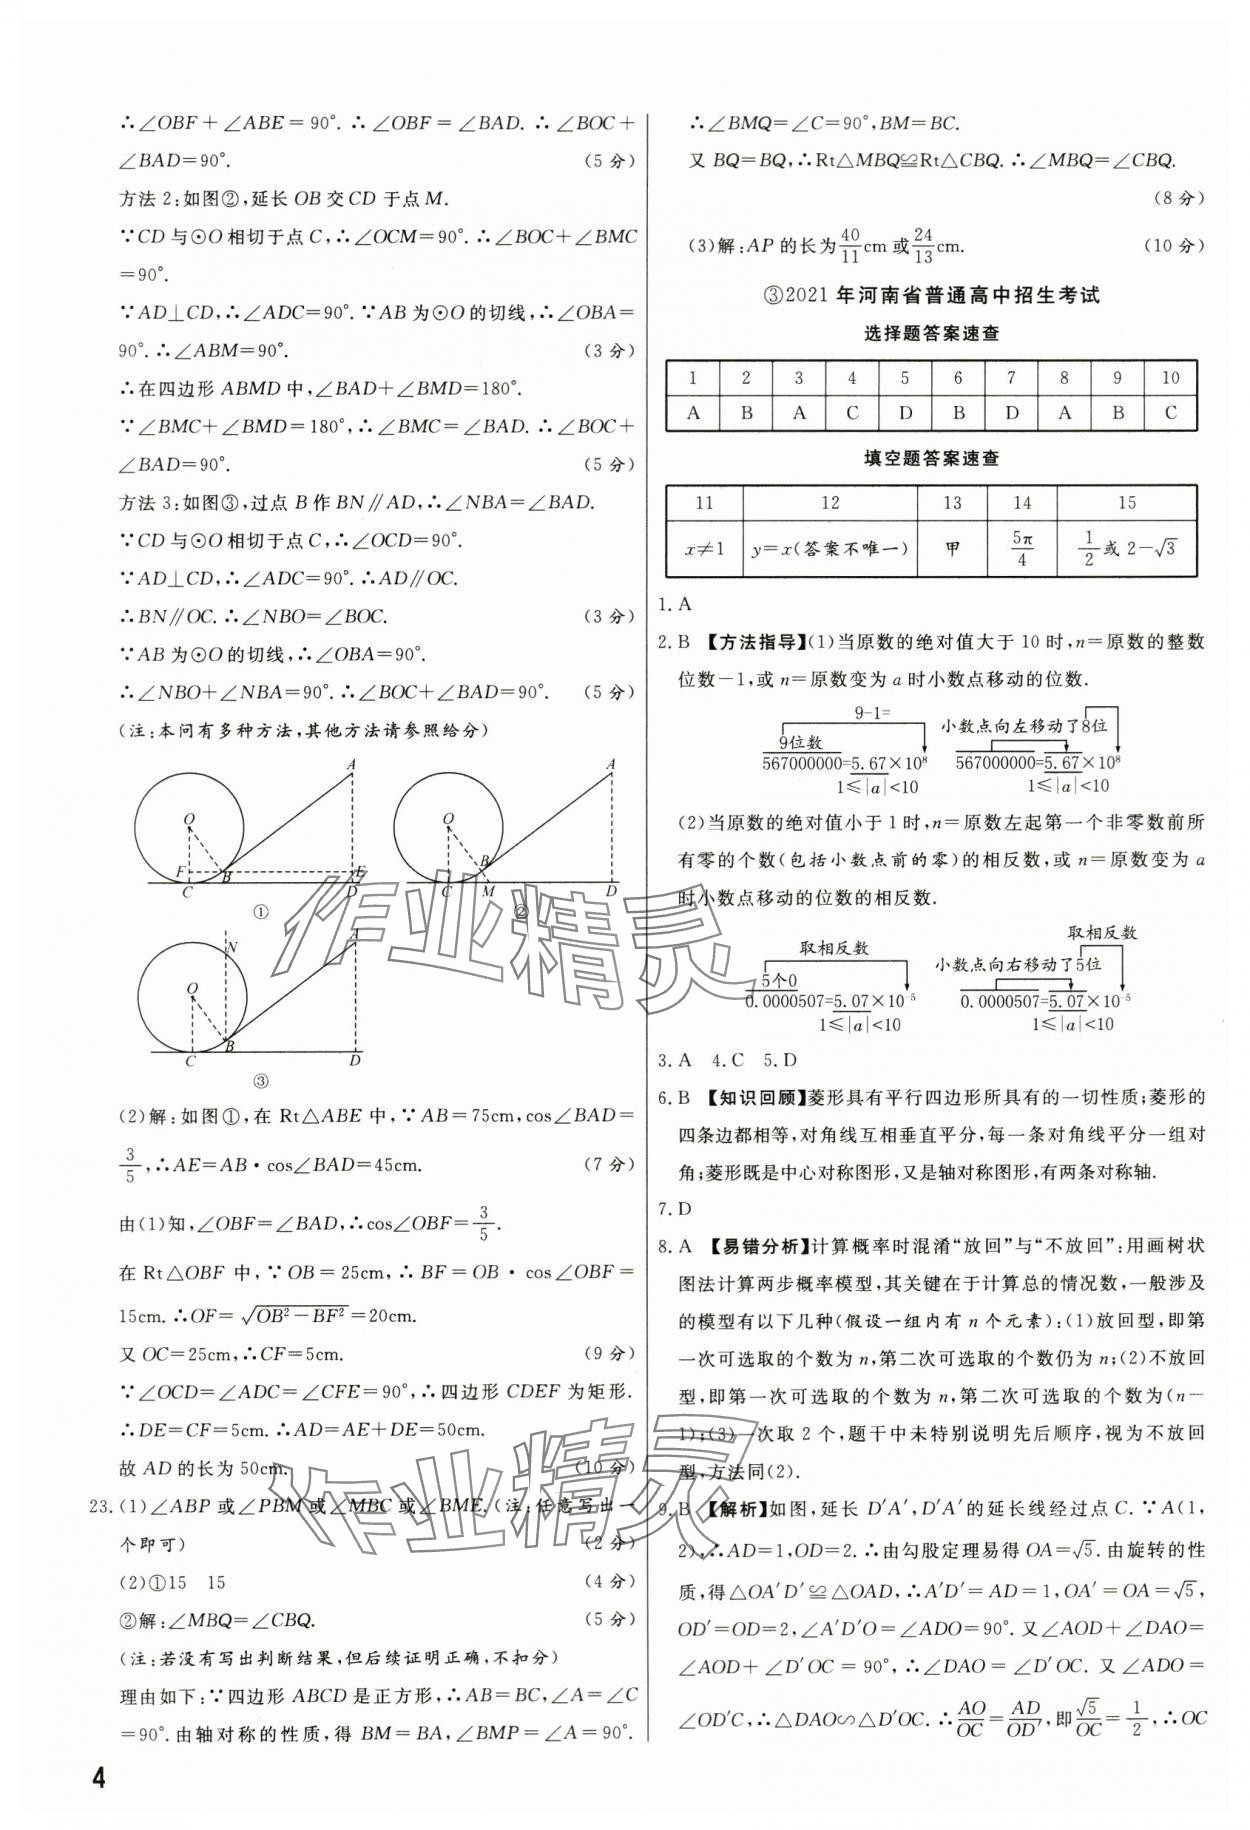 ∴∠OBF+∠ABE=90°.∴∠OBF=∠BAD.∴∠BOC+
∠BAD=90°. (5分)
方法2:如图②,延长OB交CD于点M.
∵CD与⊙O相切于点C,∴∠OCM=90°.∴∠BOC+∠BMC
=90°.
∵AD⊥CD,∴∠ADC=90°.∵AB为⊙O的切线,∴∠OBA=
90°.∴∠ABM=90°. (3分)
∴在四边形ABMD中,∠BAD+∠BMD=180°.
∵∠BMC+∠BMD=180°,∴∠BMC=∠BAD.∴∠BOC+
∠BAD=90°. (5分)
方法3:如图③,过点B作BN∥AD,∴∠NBA=∠BAD.
∵CD与⊙O相切于点C,∴∠OCD=90°.
∵AD⊥CD,∴∠ADC=90°.∴AD∥OC.
∴BN∥OC.∴∠NBO=∠BOC. (3分)
∵AB为⊙O的切线,∴∠OBA=90°.
∴∠NBO+∠NBA=90°.∴∠BOC+∠BAD=90°. (5分)
(注:本问有多种方法,其他方法请参照给分)
A A
O O
F B E B
C D C M D
① ②
N A
O
B
C D
③
(2)解:如图①,在Rt△ABE中,∵AB=75cm,cos∠BAD=
3/5,∴AE=AB·cos∠BAD=45cm. (7分)
由(1)知,∠OBF=∠BAD,∴cos∠OBF=3/5.
在Rt△OBF中,∵OB=25cm,∴BF=OB·cos∠OBF=
15cm.∴OF=√(OB²-BF²)=20cm.
又OC=25cm,∴CF=5cm. (9分)
∵∠OCD=∠ADC=∠CFE=90°,∴四边形CDEF为矩形.
∴DE=CF=5cm.∴AD=AE+DE=50cm.
故AD的长为50cm. (10分)
23.(1)∠ABP或∠PBM或∠MBC或∠BME.(注:任意写出一
个即可) (2分)
(2)①15 15 (4分)
②解:∠MBQ=∠CBQ. (5分)
(注:若没有写出判断结果,但后续证明正确,不扣分)
理由如下:∵四边形ABCD是正方形,∴AB=BC,∠A=∠C
=90°.由轴对称的性质,得BM=BA,∠BMP=∠A=90°.
4
∴∠BMQ=∠C=90°,BM=BC.
又BQ=BQ,∴Rt△MBQ≌Rt△CBQ.∴∠MBQ=∠CBQ.
(8分)
(3)解:AP的长为40/11cm或24/13cm. (10分)
③2021年河南省普通高中招生考试
选择题答案速查
1 2 3 4 5 6 7 8 9 10
A B A C D B D A B C
填空题答案速查
11 12 13 14 15
x≠1 y=x(答案不唯一) 甲 5π/4 1/2或2-√3
1.A
2.B 【方法指导】(1)当原数的绝对值大于10时,n=原数的整数
位数-1,或n=原数变为a时小数点移动的位数.
9-1=
9位数 小数点向左移动了8位
567000000=5.67×10⁸ 567000000=5.67×10⁸
1≤|a|<10 1≤|a|<10
(2)当原数的绝对值小于1时,n=原数左起第一个非零数前所
有零的个数(包括小数点前的零)的相反数,或n=原数变为a
时小数点移动的位数的相反数.
取相反数 取相反数
5个0 小数点向右移动了5位
0.0000507=5.07×10⁻⁵ 0.0000507=5.07×10⁻⁵
1≤|a|<10 1≤|a|<10
3.A 4.C 5.D
6.B 【知识回顾】菱形具有平行四边形所具有的一切性质;菱形的
四条边都相等,对角线互相垂直平分,每一条对角线平分一组对
角;菱形既是中心对称图形,又是轴对称图形,有两条对称轴.
7.D
8.A 【易错分析】计算概率时混淆“放回”与“不放回”:用画树状
图法计算两步概率模型,其关键在于计算总的情况数,一般涉及
的模型有以下几种(假设一组内有n个元素):(1)放回型,即第
一次可选取的个数为n,第二次可选取的个数仍为n;(2)不放回
型,即第一次可选取的个数为n,第二次可选取的个数为(n-
1);(3)一次取2个,题干中未特别说明先后顺序,视为不放回
型,方法同(2).
9.B 【解析】如图,延长D′A′,D′A′的延长线经过点C.∵A(1,
2),∴AD=1,OD=2.∴由勾股定理易得OA=√5.由旋转的性
质,得△OA′D′≌△OAD,∴A′D′=AD=1,OA′=OA=√5,
OD′=OD=2,∠A′D′O=∠ADO=90°.又∠AOD+∠DAO=
∠AOD+∠D′OC=90°,∴∠DAO=∠D′OC.又∠ADO=
∠OD′C,∴△DAO∽△D′OC.∴AO/OC=AD/OD′,即√5/OC=1/2,∴OC
作业精灵
作业精灵